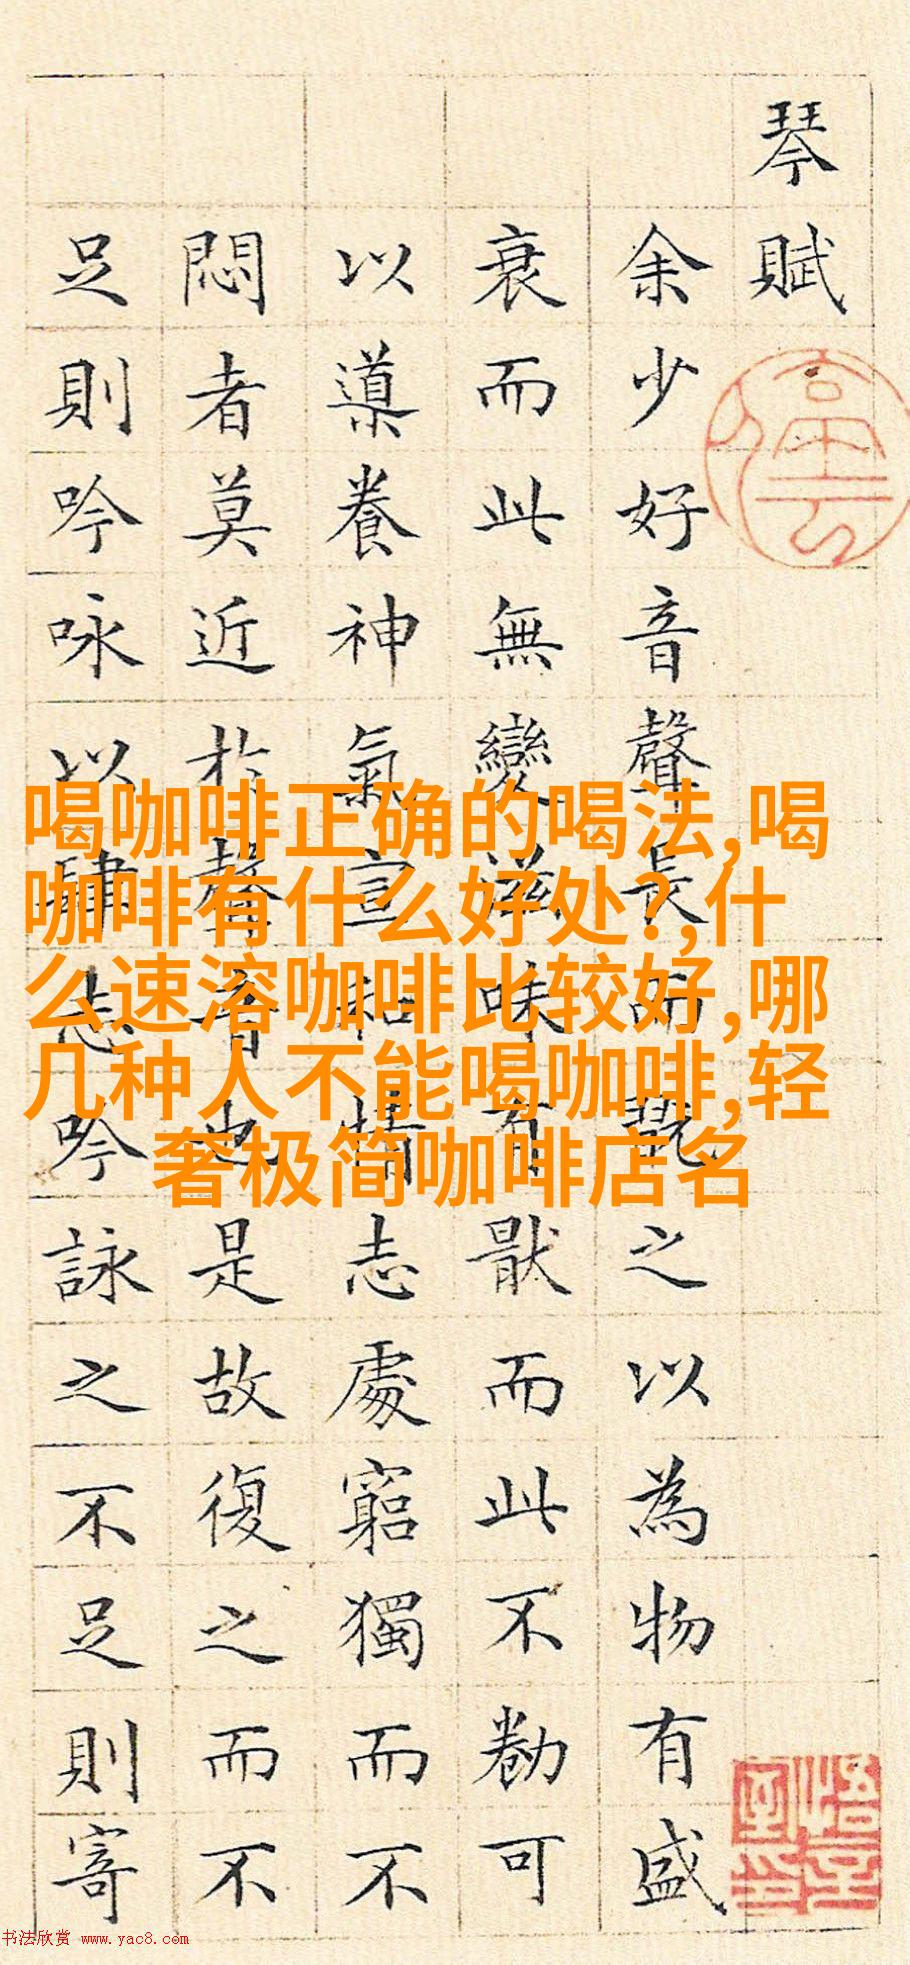 琴賦
余少好音聲長而翫之以為物有盛
衰而此無變滋味有猒而此不勌可
以導養神氣宣和情志處窮獨而不
悶者莫近於聲音也是故復之而不
足則吟咏以肆志吟詠之不足則寄
喝咖啡正确的喝法,喝
咖啡有什么好处?,什
么速溶咖啡比较好,哪
几种人不能喝咖啡,轻
奢极简咖啡店名
书法欣赏 www.yac8.com